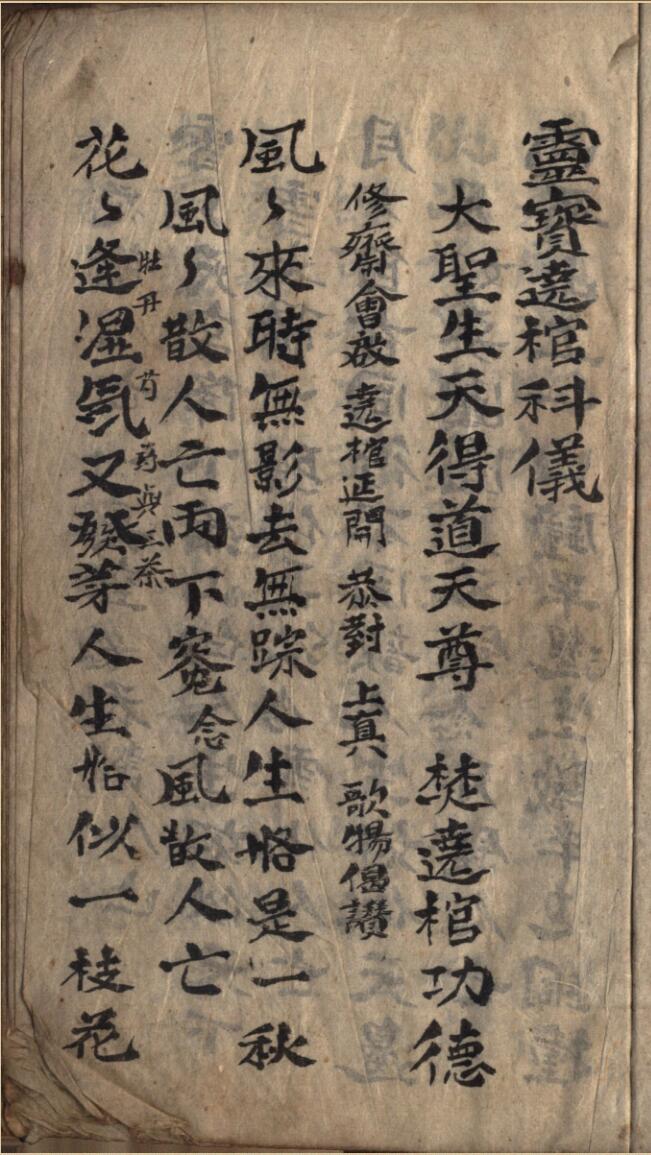 靈寳遶棺科儀
大聖生天得道天尊　焚遶棺功德
修齋會啟　遶棺延開　恭對　上真　歌揚偈讃
風〻來時無影去無踪人生恰是一秋
風〻散人亡雨下寃念風散人亡
牡丹芍葯與三茶
花〻逢濕氛又發芽人生恰似一枝花